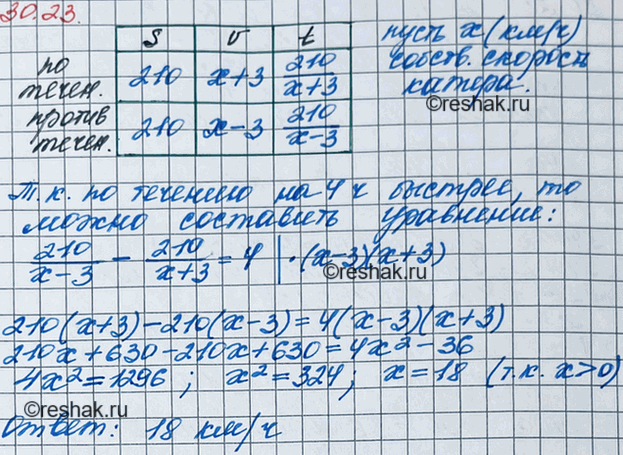 30.23.
S v t
по течен. 210 x+3 210/(x+3)
против течен. 210 x-3 210/(x-3)
пусть x (км/ч)
собств. скорость
катера.
©reshak.ru
Т.к. по течению на 4 ч быстрее, то
можно составить уравнение:
210/(x-3) - 210/(x+3) = 4 | ·(x-3)(x+3)
©reshak.ru
210(x+3)-210(x-3)=4(x-3)(x+3)
210x+630-210x+630=4x²-36
4x²=1296; x²=324; x=18 (т.к. x>0)
©reshak.ru
Ответ: 18 км/ч